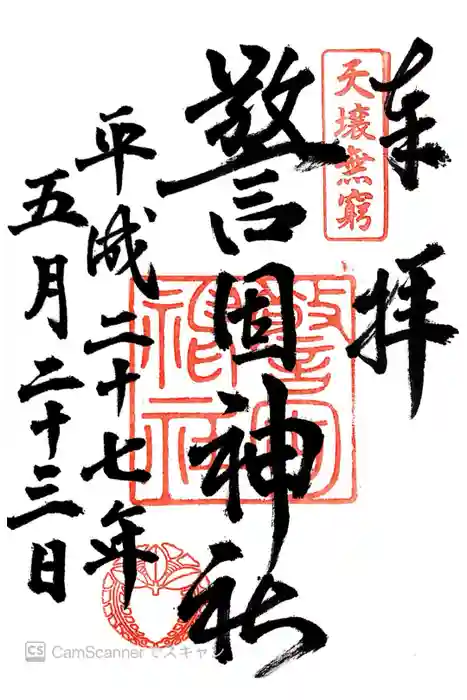 奉拝
天壌無窮
警固神社
警固神社
平成二十七年
五月二十三日
CS CamScannerでスキャン